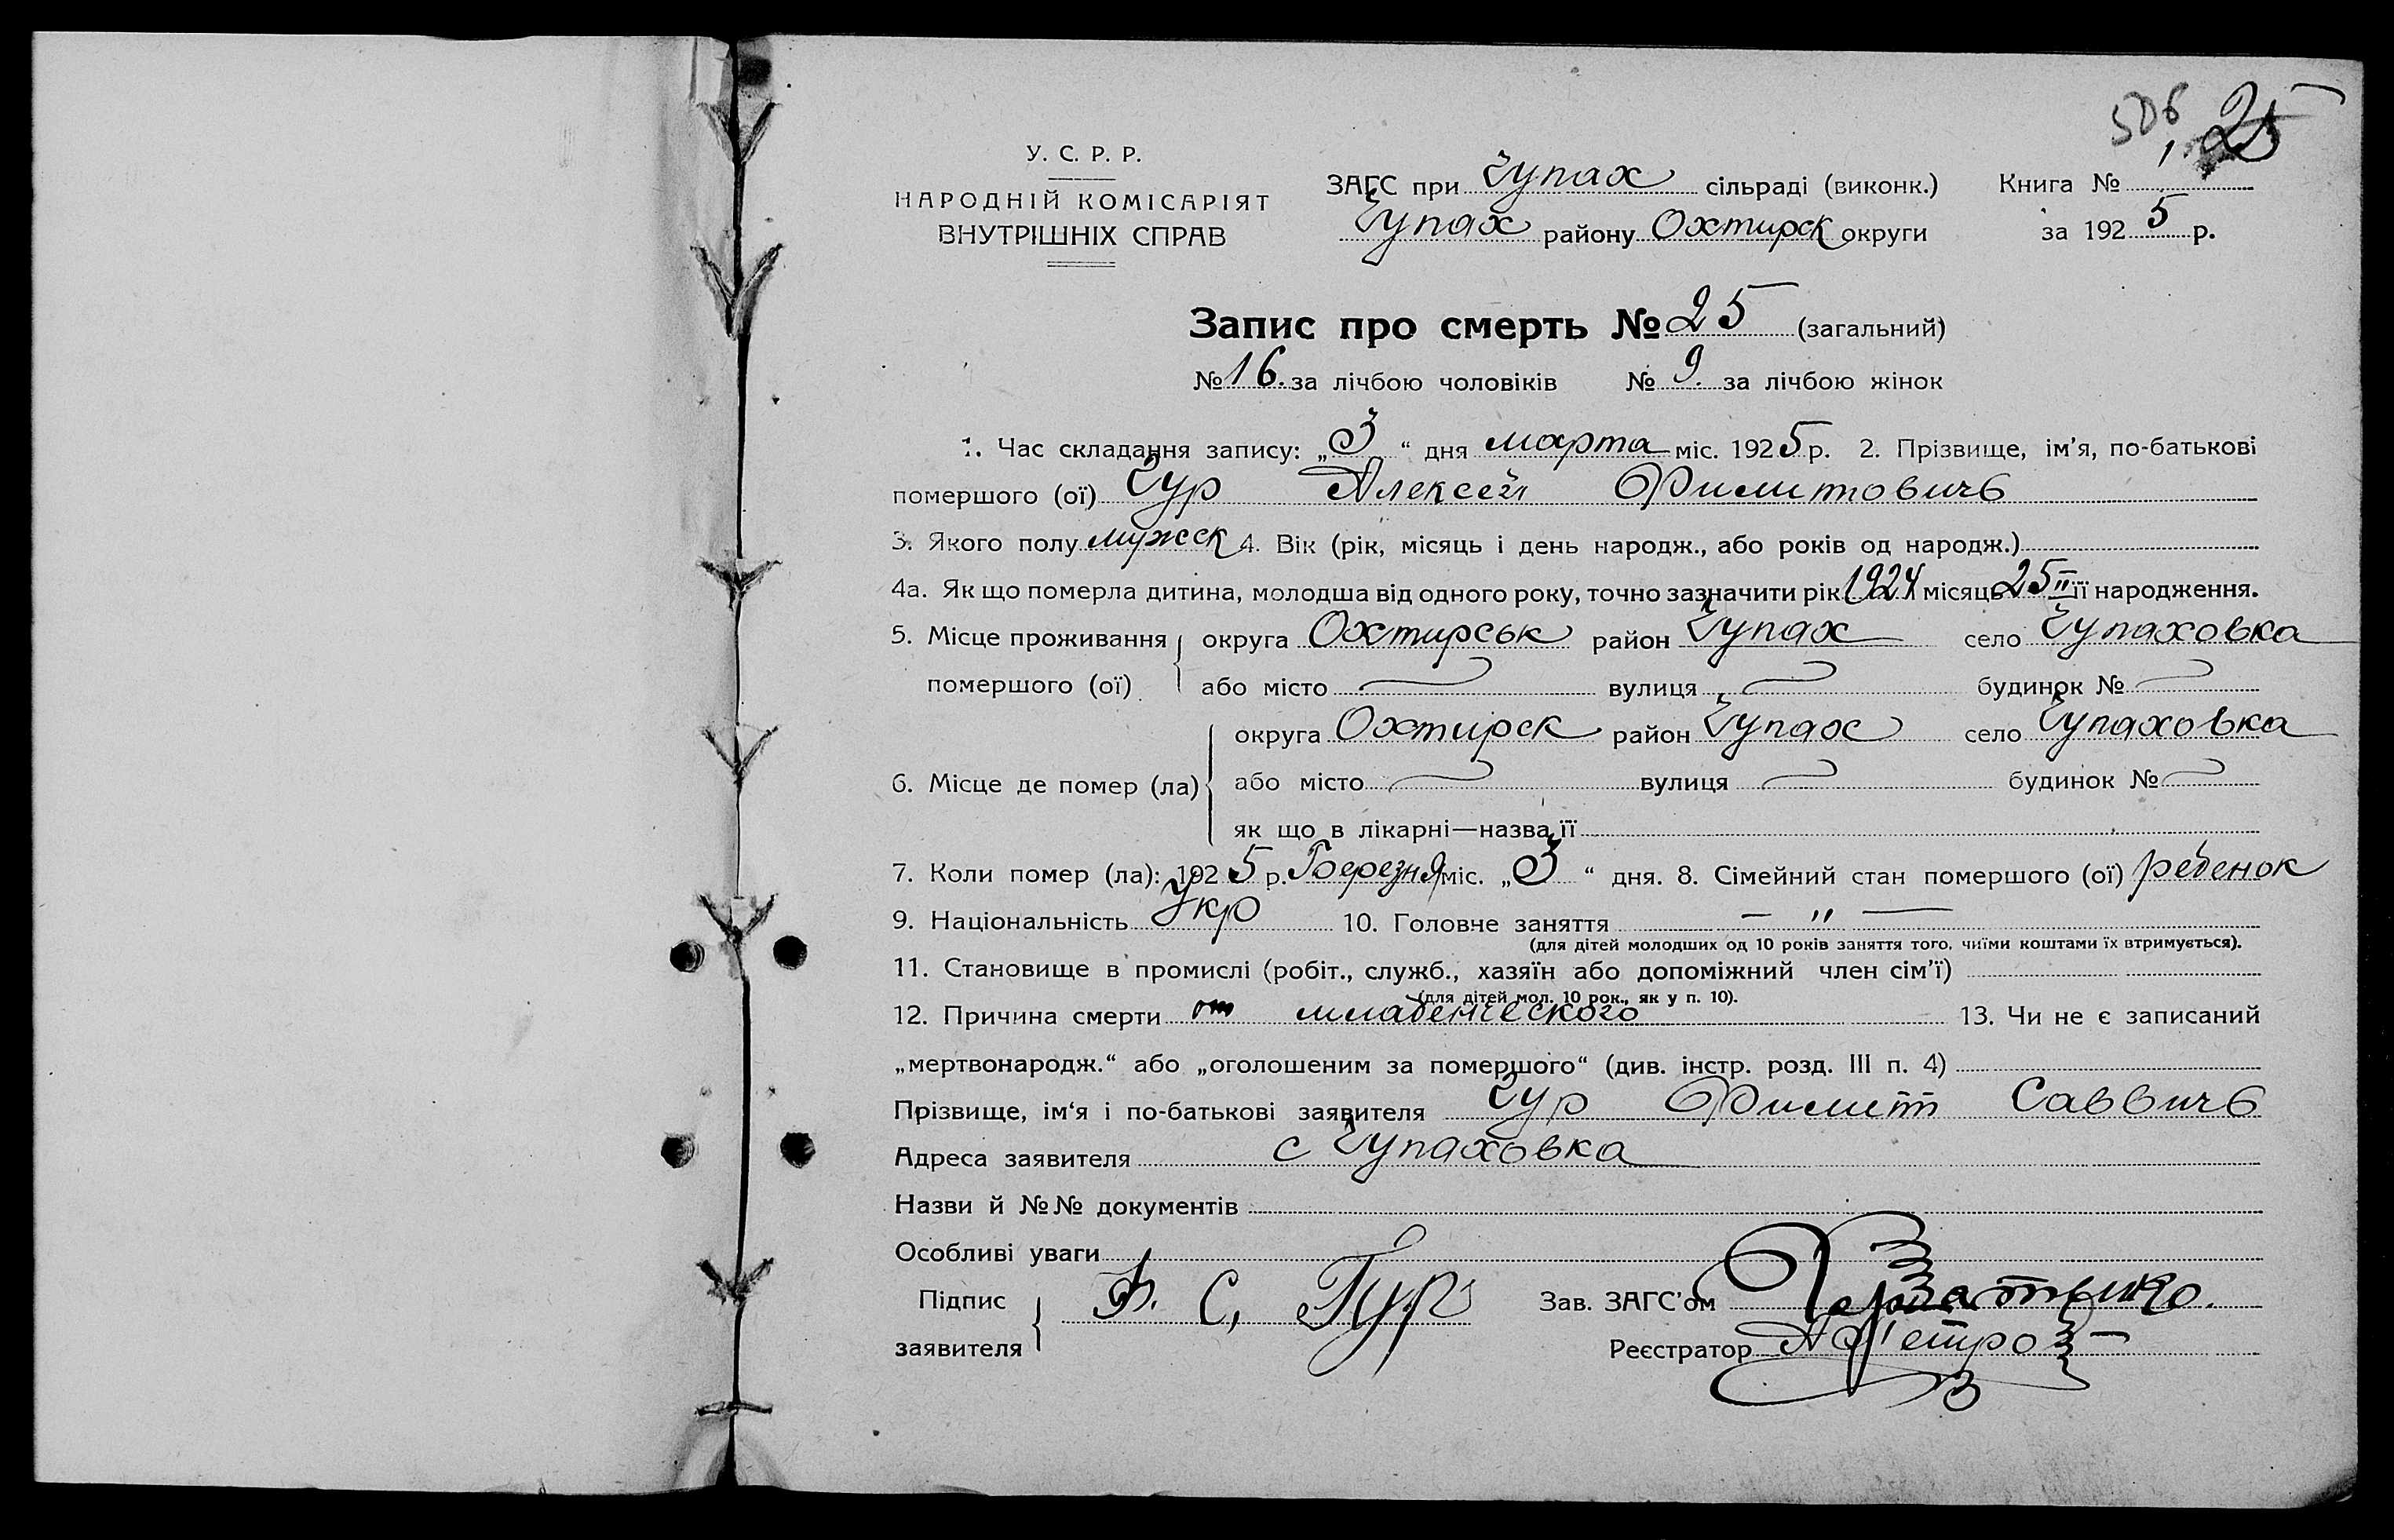 506 25
У. С. Р. Р.
НАРОДНІЙ КОМІСАРІЯТ
ВНУТРІШНІХ СПРАВ
ЗАГС при Чупах сільраді (виконк.) Книга № 1
Чупах району Охтирск округи за 1925 р.
Запис про смерть № 25 (загальний)
№ 16. за лічбою чоловіків № 9. за лічбою жінок
1. Час складання запису: „3“ дня марта міс. 1925 р. 2. Прізвище, ім'я, по-батькові
помершого (ої) Гур Алексей Филитовичь
3. Якого полу мужск 4. Вік (рік, місяць і день народж., або років од народж.)
4а. Як що померла дитина, молодша від одного року, точно зазначити рік 1924 місяць 25 II її народження.
5. Місце проживання округа Охтирськ район Чупах село Чупаховка
помершого (ої) або місто вулиця будинок №
округа Охтирск район Чупах село Чупаховка
6. Місце де помер (ла) або місто вулиця будинок №
як що в лікарні—назва її
7. Коли помер (ла): 1925 р. Березня міс. „3“ дня. 8. Сімейний стан помершого (ої) ребенок
9. Національність Укр 10. Головне заняття — " —
(для дітей молодших од 10 років заняття того, чиїми коштами їх втримується).
11. Становище в промислі (робіт., служб., хазяїн або допоміжний член сім'ї)
(для дітей мол. 10 рок., як у п. 10).
12. Причина смерти от младенческого 13. Чи не є записаний
„мертвонародж.“ або „оголошеним за помершого“ (див. інстр. розд. III п. 4)
Прізвище, ім'я і по-батькові заявителя Гур Филит Саввичь
Адреса заявителя с Чупаховка
Назви й №№ документів
Особливі уваги
Підпис Ф. С. Гур Зав. ЗАГС'ом
заявителя Реєстратор